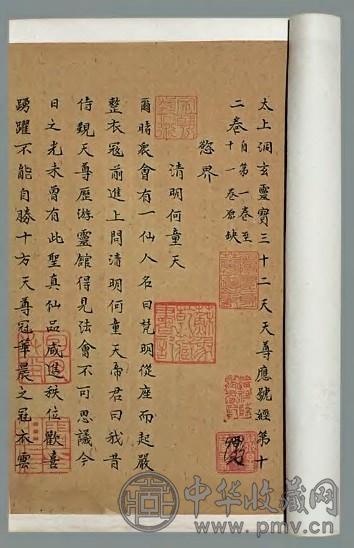 太上洞玄靈寶三十二天天尊應號經第十
二卷 自第一卷至
十一卷原缺
慾界
清明何童天
爾時衆會有一仙人名曰梵明從座而起嚴
整衣冠前進上問清明何童天帝君曰我昔
侍覲天尊歷游靈館得見法會不可思議今
日之光未曾有此聖真仙品咸進秩位歡喜
踴躍不能自勝十方天尊冠華晨之冠衣雲
中华收藏网
www.pmv.cn